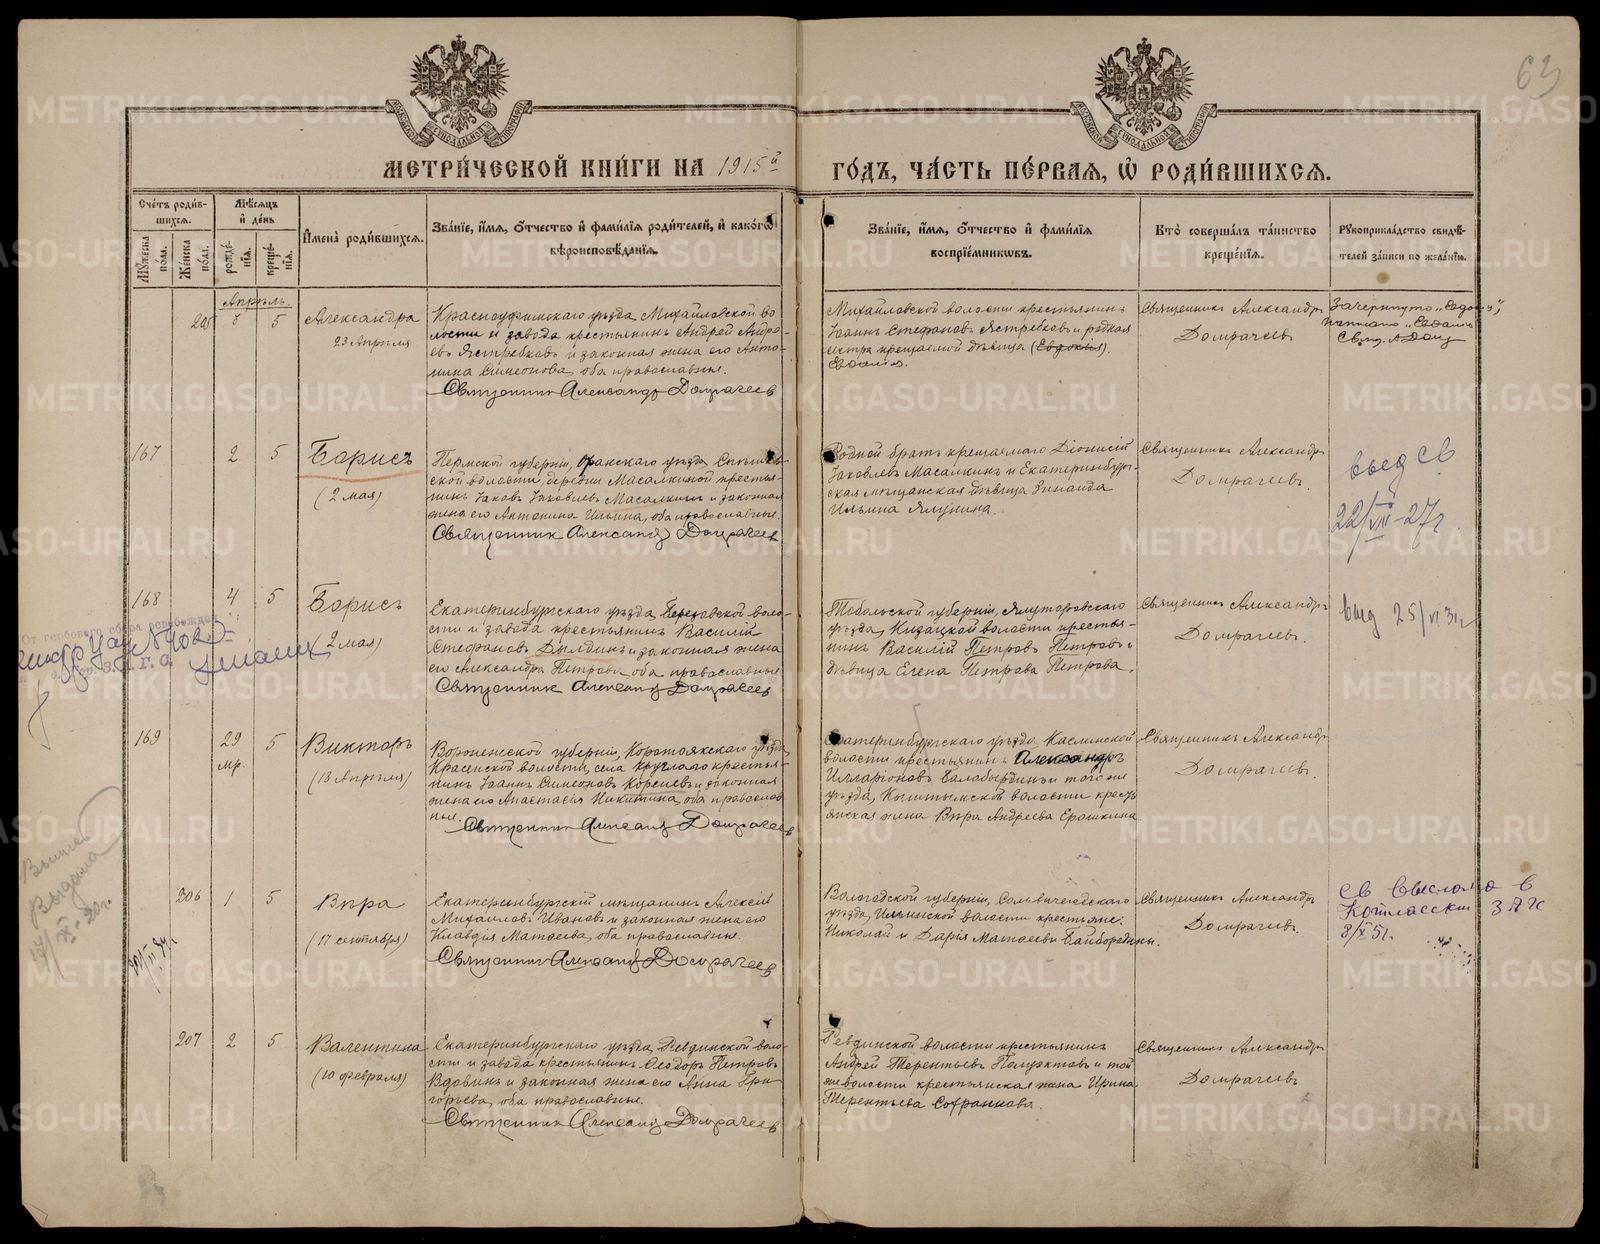 63
МЕТРИ́ЧЕСКОЙ КНИ́ГИ НА 1915й
ГО́ДЪ, ЧА́СТЬ ПЕ́РВАЯ, Ѡ҆ РОДИ́ВШИХСЯ.
Сче́тъ роди́в-
шихся.
Мꙋ́жеска по́ла.
Же́нска по́ла.
Мѣ́сяцъ
и҆ де́нь
рожде́-
нїя.
креще́-
нїя.
И҆мена̀ роди́вшихся.
Зва́нїе, и҆́мя, ѻ҆́тчество и҆ фами́лїя роди́телей, и҆ како́гѡ
вѣроисповѣ́данїя.
Зва́нїе, и҆́мя, ѻ҆́тчество и҆ фами́лїя
воспрїе́мниковъ.
Кто̀ соверша́лъ та́инство
креще́нїя.
Рꙋкоприкла́дство свидѣ́-
телей за́писи по жела́нїю.
Апрѣль.
205
5
Александра
23 Апрѣля
Красноуфимскаго уѣзда, Михайловской во
лости и завода крестьянинъ Андрей Андре-
евъ Ястребковъ и законная жена его Анто-
нина Симеонова, оба православные.
Священникъ Александръ Домрачеев
Михайловской волости крестьянинъ
Іоаннъ Стефановъ Ястребковъ и родная
сестра крещаемой дѣвица (Евдокія).
Священникъ Александръ
Домрачеевъ
Зачеркнуто
написано
167
2
5
Борисъ
(2 мая)
Пермской губерніи, Оханскаго уѣзда
ской волости, деревни Масалкиной крестья-
нинъ Іаковъ Іаковлевъ Масалкинъ и законная
жена его Антонина Ильина, оба православные.
Священник Александр Домрачеев
Родной братъ крещаемаго Діонисій
Іаковлевъ Масалкинъ и Екатеринбург-
ская мѣщанская дѣвица Зинаида
Ильина Ялунина.
Священникъ Александръ
Домрачеевъ.
22/VIII-27г.
168
4
5
Борисъ
(2 мая)
Екатеринбургскаго уѣзда, Березовской воло-
сти и завода крестьянинъ Василій
Стефановъ Дылдинъ и законная жена
его Александра Петрова, оба православные
Священник Александр Домрачеев
Тобольской губерніи, Ялуторовскаго
уѣзда, Кизацкой волости крестья-
нинъ Василій Петровъ Петровъ и
дѣвица Елена Петрова Петрова.
Священникъ Александръ
Домрачеевъ.
От гербового сбора освобожден
169
29
мр.
5
Викторъ
(18 Апрѣля)
Воронежской губерніи, Коротоякскаго уѣзда
Красенской волости, села Круглаго крестья-
нинъ Іоаннъ Симеоновъ Кореневъ и законная
жена его Анастасія Никитина, оба православ
ные.
Священник Александр Домрачеев
Екатеринбургскаго уѣзда Каслинской
волости крестьянинъ Александръ
Илларіоновъ Балабырдинъ и того же
уѣзда, Кыштымской волости кресть
янская жена Вѣра Андреева Ерошкина
Священникъ Александръ
Домрачеевъ.
206
1
5
Вѣра
(17 сентября)
Екатеринбургскій мѣщанинъ Алексій
Михаиловъ Ивановъ и законная жена его
Клавдія Матѳеева, оба православные.
Священник Александр Домрачеев
Вологодской губерніи, Сольвычегодскаго
уѣзда, Ильинской волости крестьяне:
Николай и Дарія Матѳеевы Байбородины.
Священникъ Александръ
Домрачеевъ.
Св выслано в
Котласский ЗАГС
8/X 51г.
207
2
5
Валентина
(10 февраля)
Екатеринбургскаго уѣзда, Ревдинской воло-
сти и завода крестьянинъ Ѳеодоръ Петровъ
Вдовинъ и законная жена его Анна Гри-
горьева, оба православные.
Священник Александр Домрачеев
Ревдинской волости крестьянинъ
Андрей Терентьевъ Полуэктовъ и той
же волости крестьянская жена Ирина
Терентьева Софронкова.
Священникъ Александръ
Домрачеевъ
METRIKI.GASO-URAL.RU